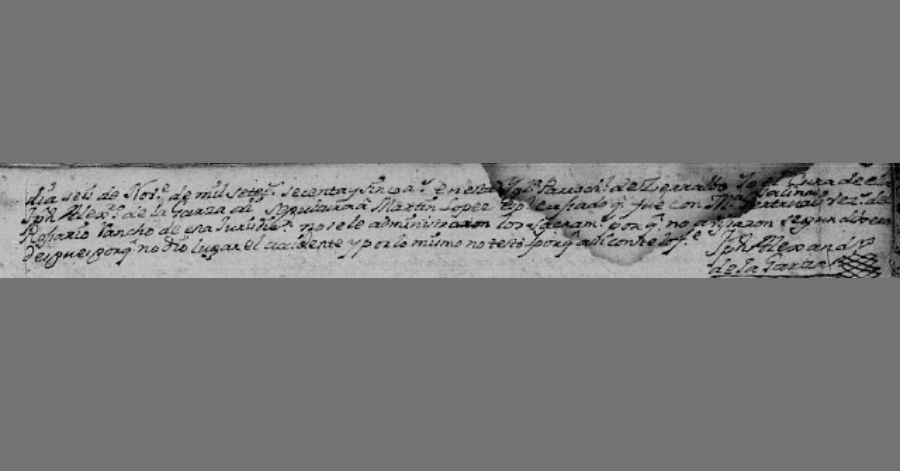 dia seis de Nov.e de mil setes. secenta y sinco a.s en esta Ygl.a Parroch.l de Zerralbo Yo Cura de ella
Jph Alex.o de la Garza di Sepultura à Martin Lopes esp.l casado q. fue con Salinas vez.s del
Rosario Rancho de esta Jurisdic.n no se le administraron los Sacram.s porq. no avisaron segun dixeron
despues porq. no dio lugar el accidente y por lo mismo no testó porq. asi conste lo f.e Jph Alexandro
de la Garza